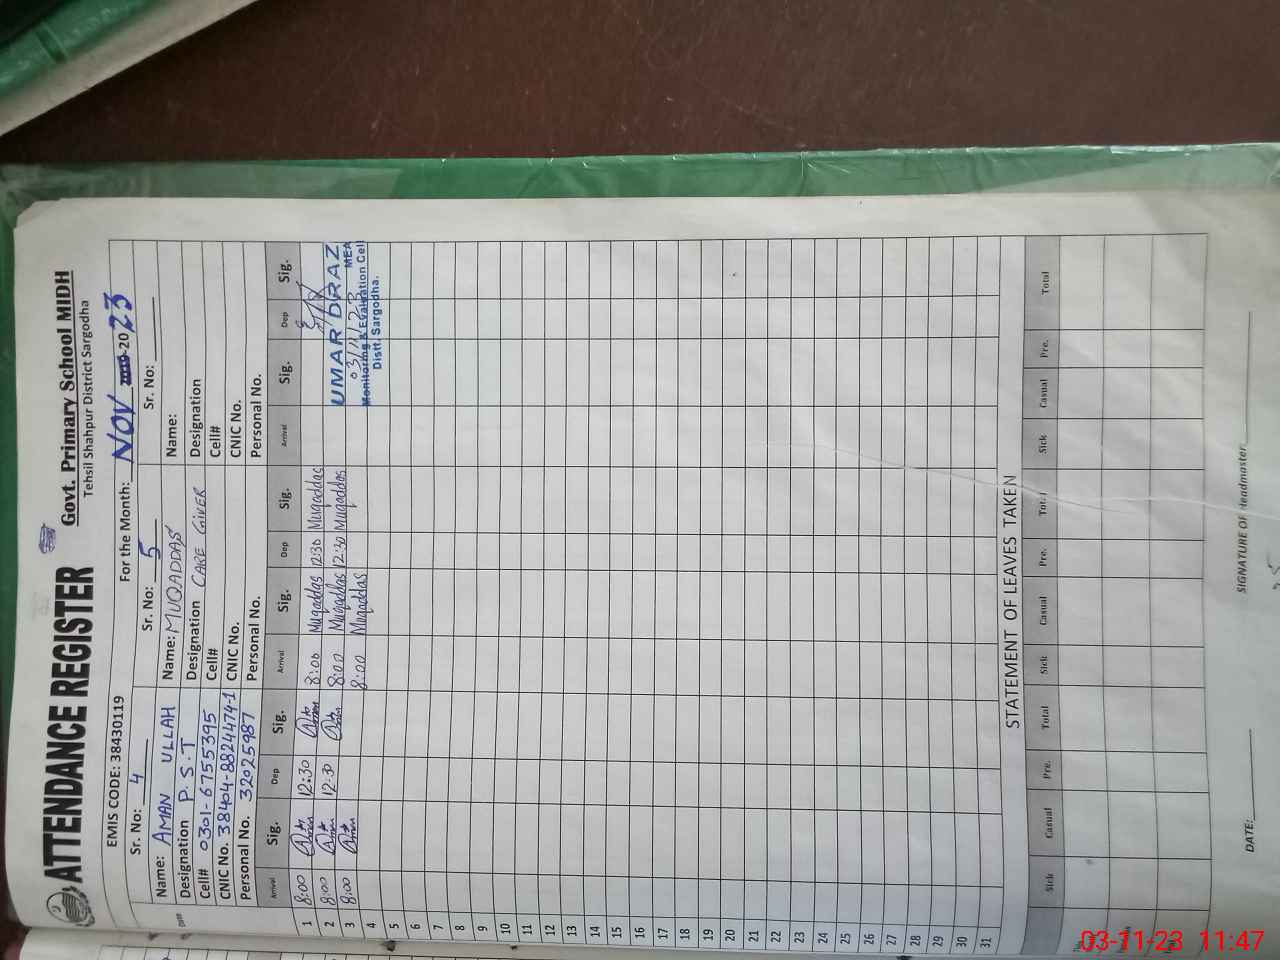 ATTENDANCE REGISTER
Govt. Primary School MIDH
Tehsil Shahpur District Sargodha
EMIS CODE: 38430119 For the Month: NOV 2019-2023
Sr. No: 4
Name: AMAN ULLAH
Designation P.S.T
Cell# 0301-6755395
CNIC No. 38404-8824474-1
Personal No. 32025987
Sr. No: 5
Name: MUQADDAS
Designation CARE GIVER
Cell#
CNIC No.
Personal No.
Sr. No:
Name:
Designation
Cell#
CNIC No.
Personal No.
Date Arrival Sig. Dep Sig. Arrival Sig. Dep Sig. Arrival Sig. Dep Sig.
1 8:00 12:30 8:00 Muqaddas 12:30 Muqaddas
2 8:00 12:30 8:00 Muqaddas 12:30 Muqaddas
3 8:00 8:00 Muqaddas
UMAR DRAZ
03/11/23 MEA
Monitoring & Evaluation Cell
Distt. Sargodha.
4
5
6
7
8
9
10
11
12
13
14
15
16
17
18
19
20
21
22
23
24
25
26
27
28
29
30
31
STATEMENT OF LEAVES TAKEN
Sick Casual Pre. Total Sick Casual Pre. Total Sick Casual Pre. Total
DATE: SIGNATURE OF Headmaster
03-11-23 11:47